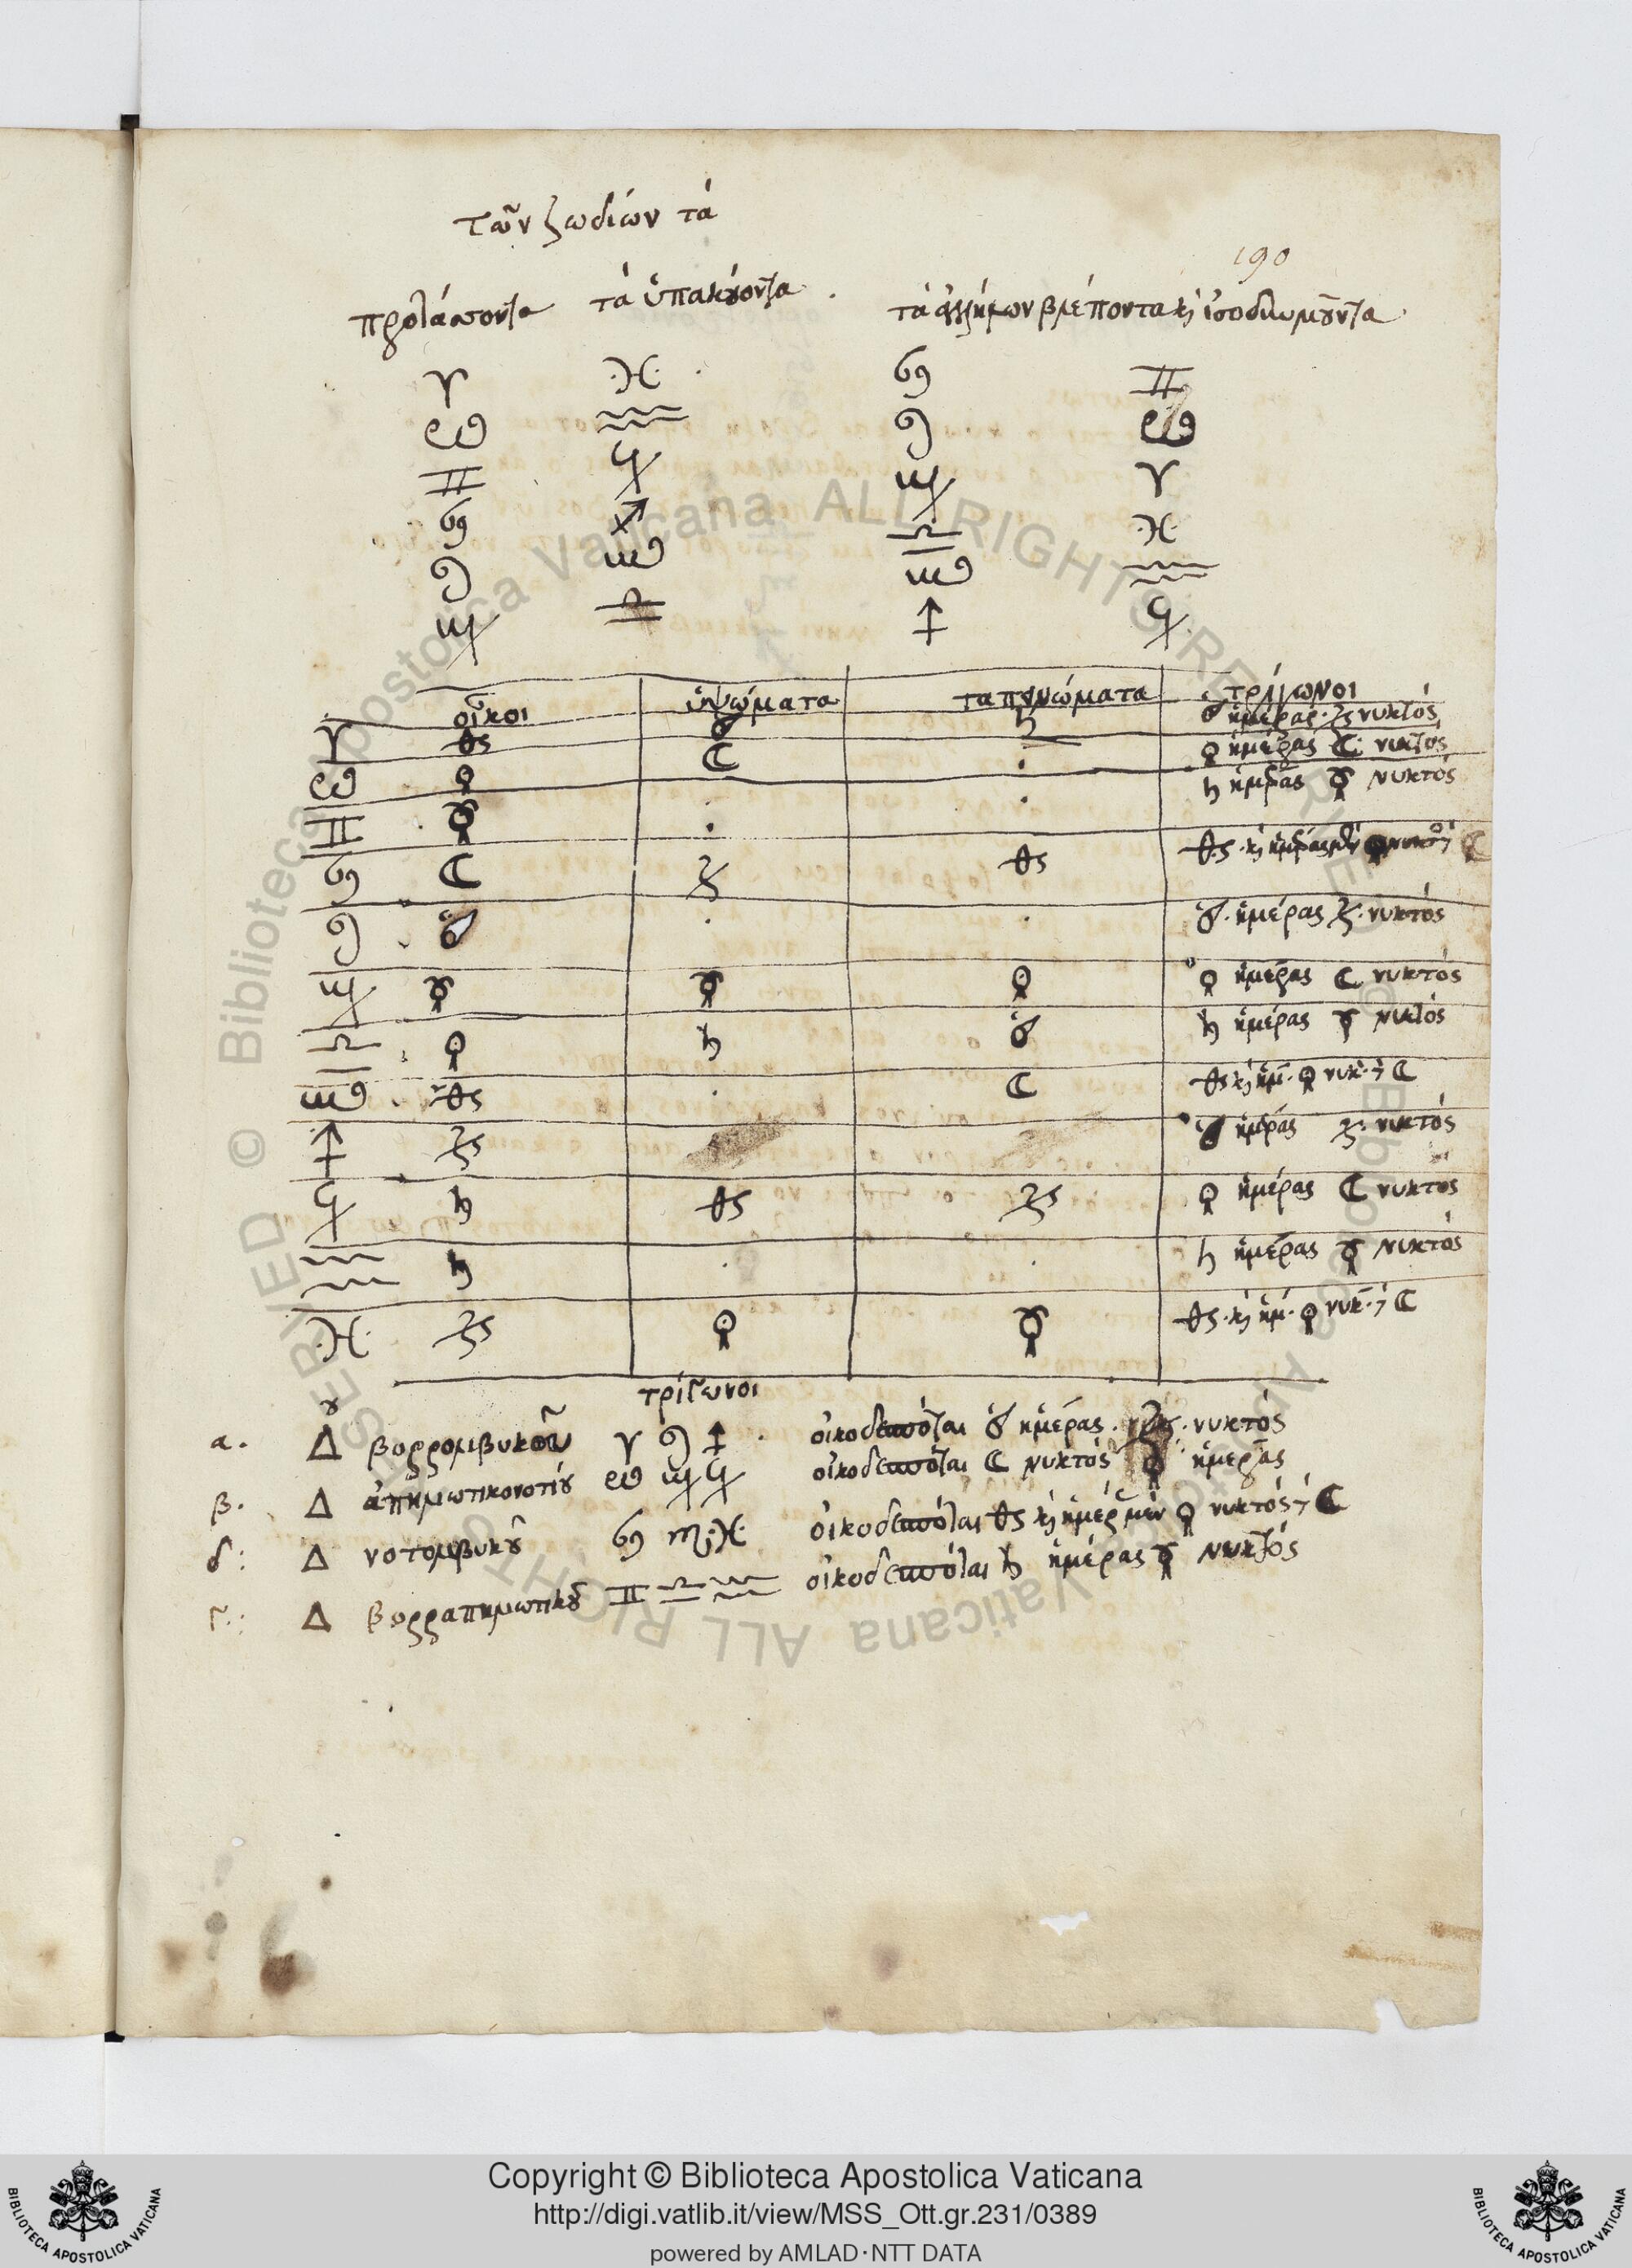 τῶν ζωδιών τὰ
190
προστάσσοντα τὰ ὑπακούοντα . τὰ ἀλλήλων βλέποντα κὶ ἰσοδυναμοῦντα
♈ ♓ ♋ ♊
♉ ♒ ♌ ♉
♊ ♑ ♍ ♈
♋ ♐ ♎ ♓
♌ ♏ ♏ ♒
♍ ♎ ♐ ♑
οἶκοι ὑψώματα ταπεινώματα τρίγωνοι
♈ ♂ ☉ ♄ ☉ ἡμέρας ♃ νυκτός
♉ ♀ ☾ . ♀ ἡμέρας ☾ νυκτός
♊ ☿ . . ♄ ἡμέρας ☿ νυκτός
♋ ☾ ♃ ♂ ♂ κὶ ἡμέρας μὲν ♀ νυκτὸς ☾
♌ ☉ . . ☉ ἡμέρας ♃ νυκτός
♍ ☿ ☿ ♀ ♀ ἡμέρας ☾ νυκτός
♎ ♀ ♄ ☉ ♄ ἡμέρας ☿ νυκτός
♏ ♂ . ☾ ♂ κὶ ἡμ. ♀ νυκ. ☾
♐ ♃ ☉ ἡμέρας ♃ νυκτός
♑ ♄ ♂ ♃ ♀ ἡμέρας ☾ νυκτός
♒ ♄ . . ♄ ἡμέρας ☿ νυκτός
♓ ♃ ♀ ☿ ♂ κὶ ἡμ. ♀ νυκ. ☾
τρίγωνοι
α. Δ βορρολιβυκοῦ ♈ ♌ ♐ . οἰκοδεσπόται ☉ ἡμέρας . ♃ . νυκτός
β. Δ ἀπηλιωτικονοτίου ♉ ♍ ♑ οἰκοδεσπόται ☾ νυκτὸς ♀ ἡμέρας
δ: Δ νοτολιβυκοῦ ♋ ♏ ♓ οἰκοδεσπόται ♂ κὶ ἡμέρας μὲν ♀ νυκτὸς ☾
γ: Δ βορραπηλιωτικοῦ ♊ ♎ ♒ οἰκοδεσπόται ♄ ἡμέρας ☿ νυκτός
Biblioteca Apostolica Vaticana ALL RIGHTS RESERVED ©
Copyright © Biblioteca Apostolica Vaticana
http://digi.vatlib.it/view/MSS_Ott.gr.231/0389
powered by AMLAD·NTT DATA
BIBLIOTECA APOSTOLICA VATICANA
BIBLIOTECA APOSTOLICA VATICANA